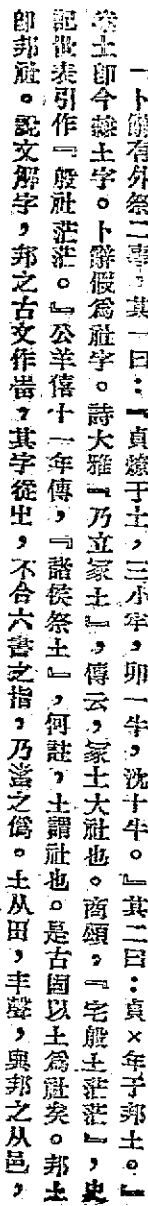 一卜辭有外祭二事,其一曰:『貞燎于土,三小牢,卯一牛,沈十牛。』其二曰:貞×年于邦土。』
土即今隸土字。卜辭假爲社字。詩大雅『乃立家土』,傳云,家土大社也。商頌,『宅殷土茫茫』,史
記世表引作『殷社茫茫。』公羊僖十一年傳,『諸侯祭土』,何註,土謂社也。是古固以土爲社矣。邦土
即邦社。說文解字,邦之古文作,其字從㞢,不合六書之指,乃之僞。土从田,丰聲,與邦之从邑,